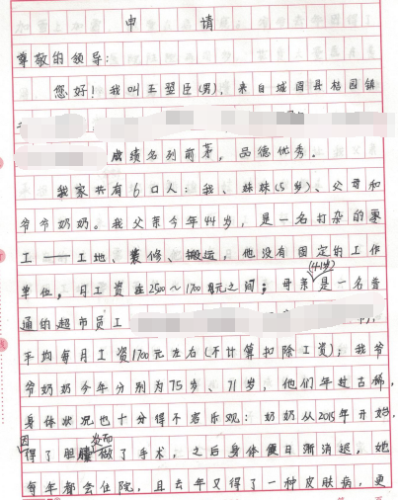 申 请
尊敬的领导:
您好! 我叫王堃臣(男), 来自城固县桔园镇
成绩名列前茅, 品德优秀。
我家共有6口人: 我、妹妹(5岁)、父母和
爷爷奶奶。我父亲今年44岁, 是一名打杂的
工——工地、装修、搬运, 他没有固定的工作
(44岁)
单位, 月工资在2500~1700元之间; 母亲是一名普
通的超市员工
平均每月工资1700元左右(不计算扣除工资); 我爷
爷奶奶今年分别为75岁、71岁, 他们年过古稀,
身体状况也十分得不容乐观: 奶奶从2015年开始,
因 炎而
得了胆囊做了手术, 之后身体便日渐消退, 她
每年都会住院, 且去年又得了一种皮肤病, 更